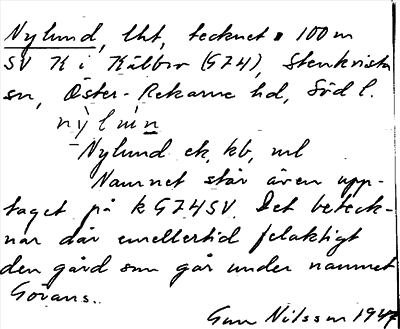 Nylund, lht, tecknet 100 m
SV K i Kälbro (G74), Stenkvista
sn, Öster-Rekarne hd, Södl.
nỳlùn
Nylund ek, kb, ml
Namnet står även upp-
taget på k G74SV. Det beteck-
nar där emellertid felaktigt
den gård som går under namnet
Görans..
Gun Nilsson 1947